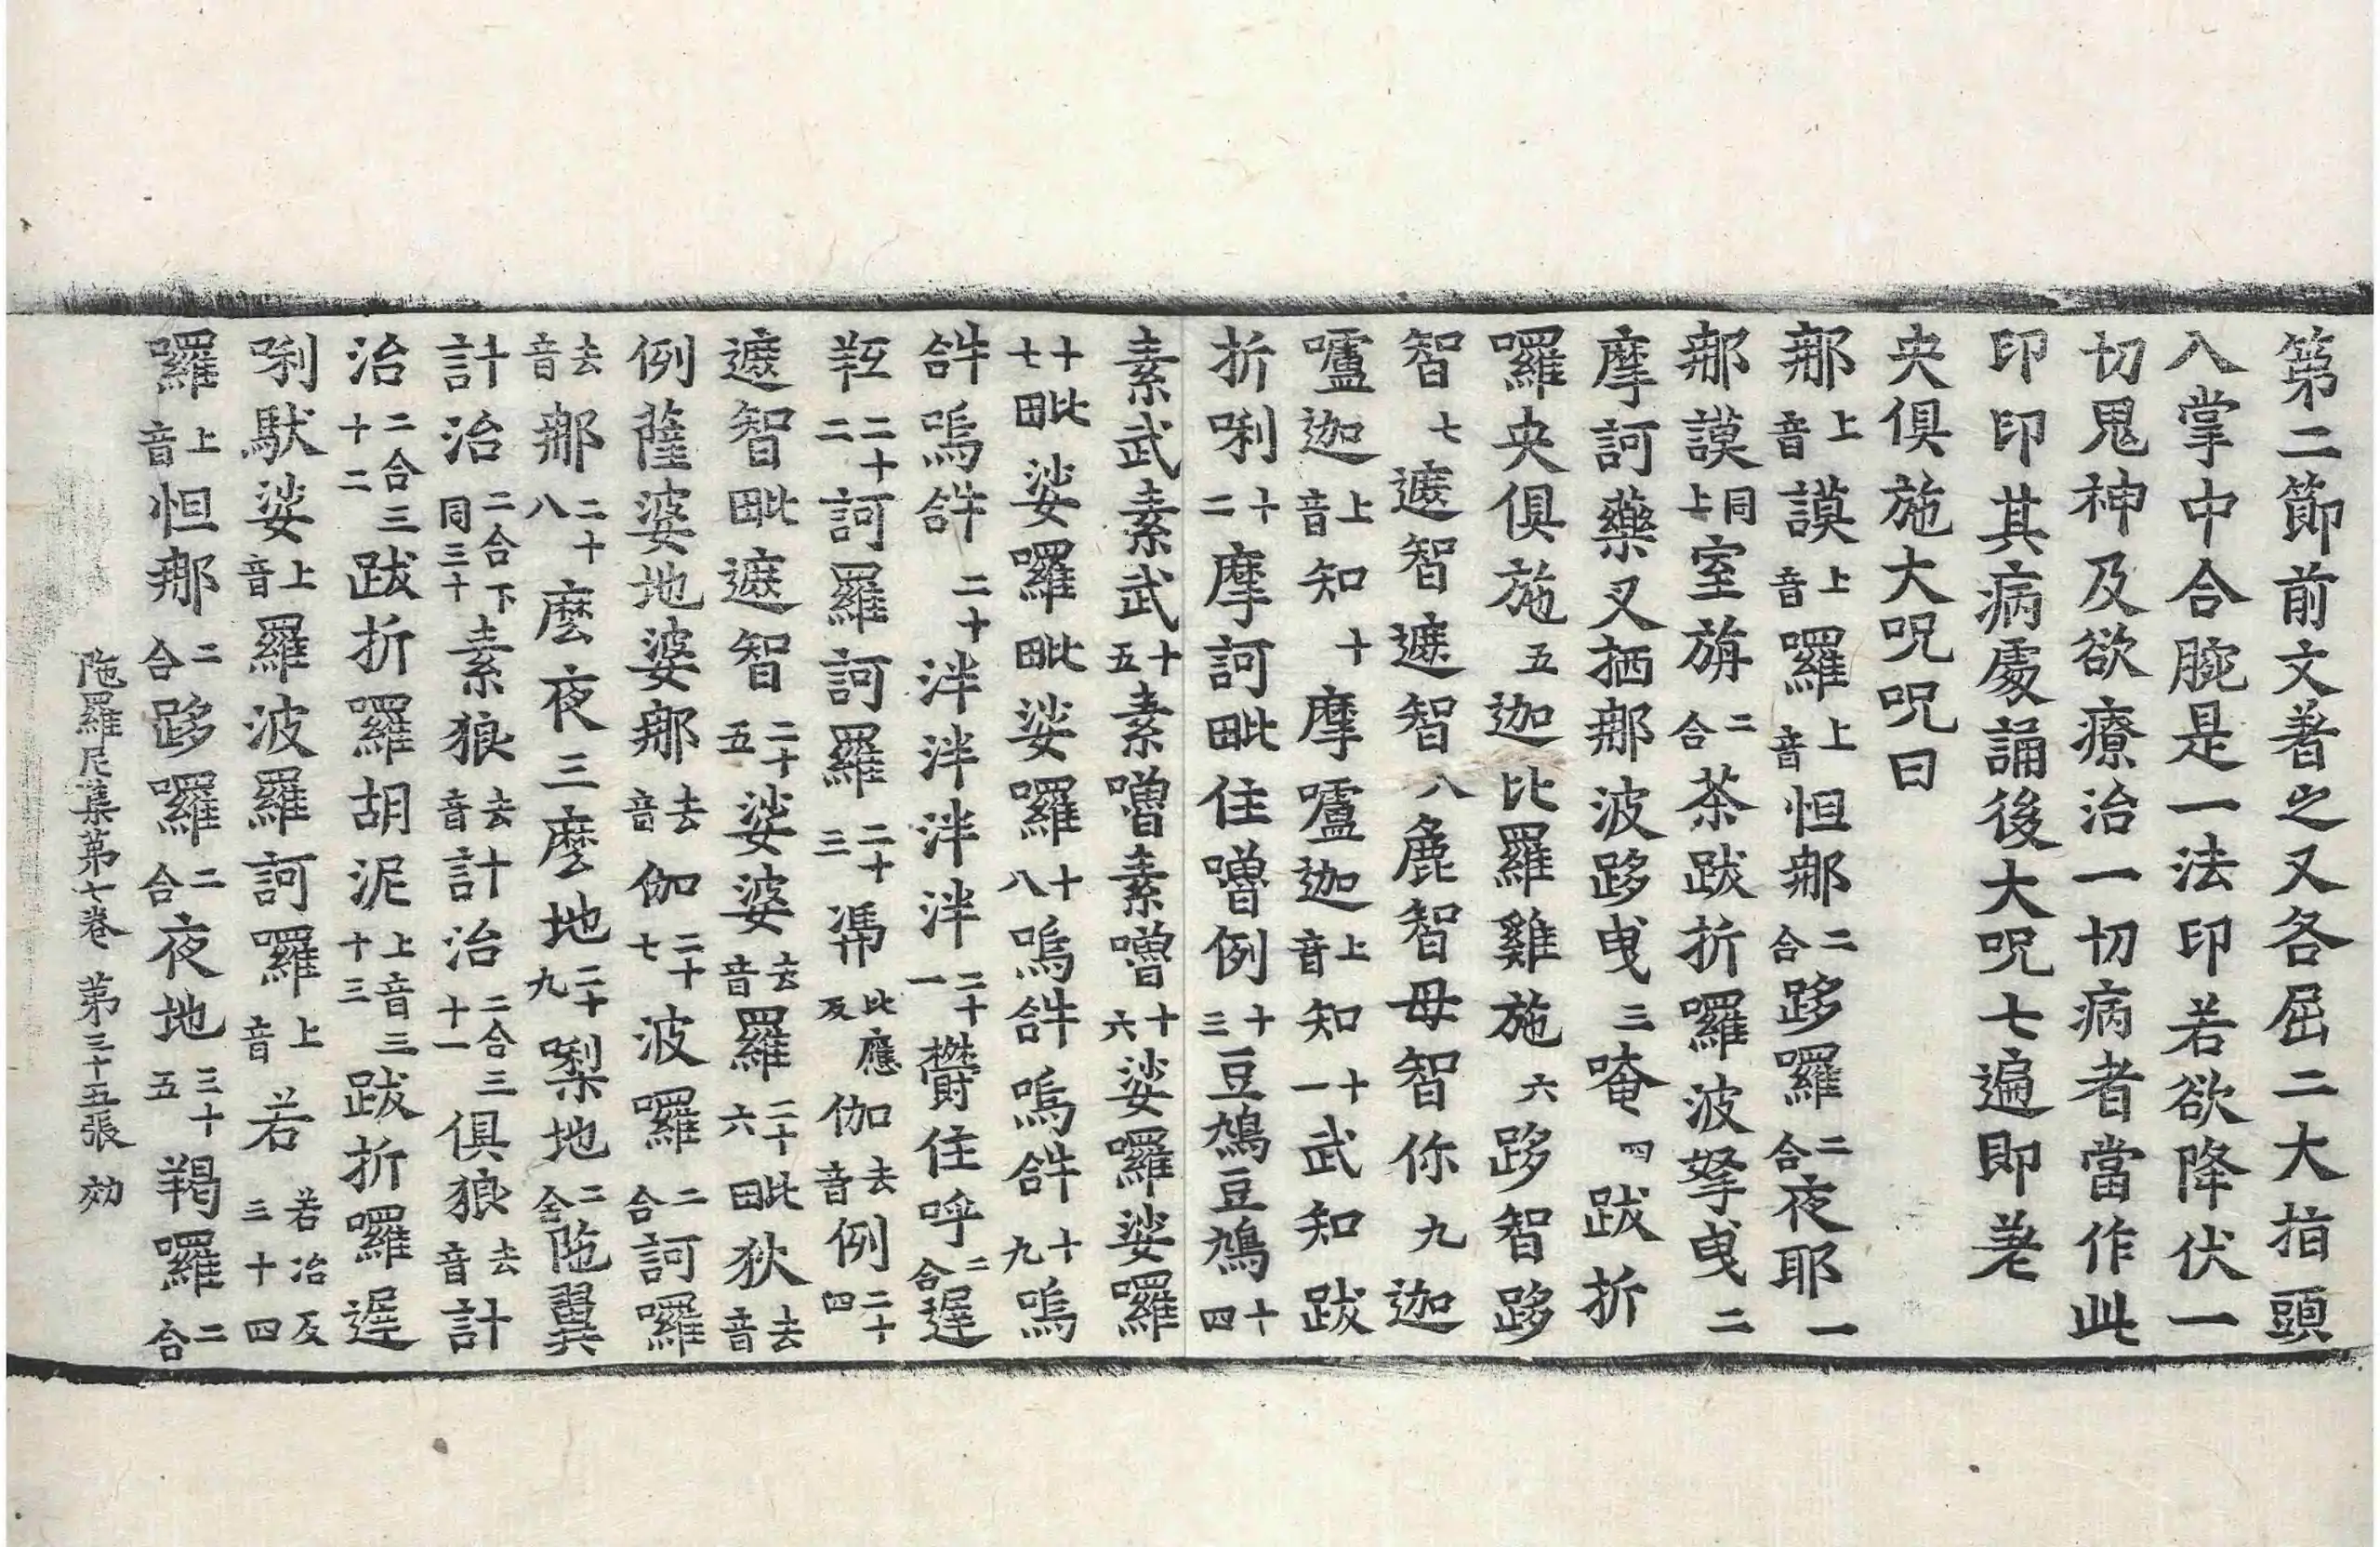 第二節前文著之又各屈二大指頭
八掌中合腕是一法印若欲降伏一
切鬼神及欲療治一切病者當作此
印印其病處誦後大呪七遍即差
央俱施大呪呪曰
那上音謨上音囉上音怛那二合跢囉二合夜耶一
那謨同上室旃二合茶跋折囉波拏曳二
摩訶藥叉栖那波跢曳三唵四跋折
囉央俱施五迦比羅雞施六跢智跢
智七遮智遮智遮智八麁智母智你九迦
嚧迦上音知十摩嚧迦上音知十一武知跋
折唎十二摩訶毗住噜例十三豆鴆豆鴆十四
素武素武十五素噜素噜十六娑囉娑囉
十七毗娑囉毗娑囉十八嗚𤙖嗚𤙖十九嗚
𤙖嗚𤙖二十泮泮泮泮二十一欝住呼二合遲
二十二訶羅訶羅二十三馮比應反伽去音例二十四
遮智毗遮智二十五娑婆去音羅二十六毗狄去音
例薩婆地婆那去音伽二十七波囉二合訶囉
去音那二十八麼夜三麼地二十九梨地二合陁翼
計十計治二合下同三十素狼去音計治二合三十一俱狼去音計
治二合三十二跋折羅胡泥上音三十三跋折囉遲
唎馱娑上音羅波羅訶囉上音若若冶反三十四
囉上音怛那二合跢囉二合夜地三十五羯囉二合
陁羅尼集第七卷 第三十五張 効